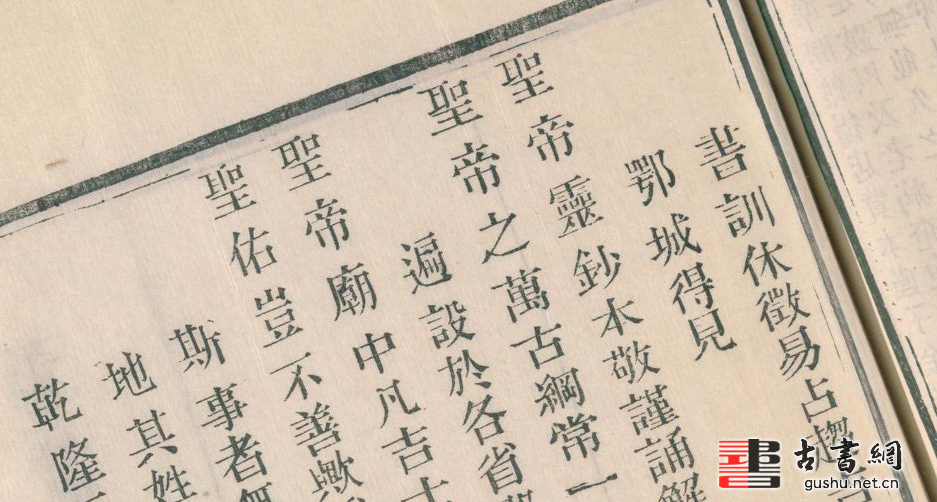 書訓休徵易占
鄂城得見
聖帝靈鈔本敬謹誦解
聖帝之萬古綱常一
遍設於各省
聖帝廟中凡吉
聖佑豈不善歟
斯事者
地其姓
乾隆
古書網
gushu.net.cn